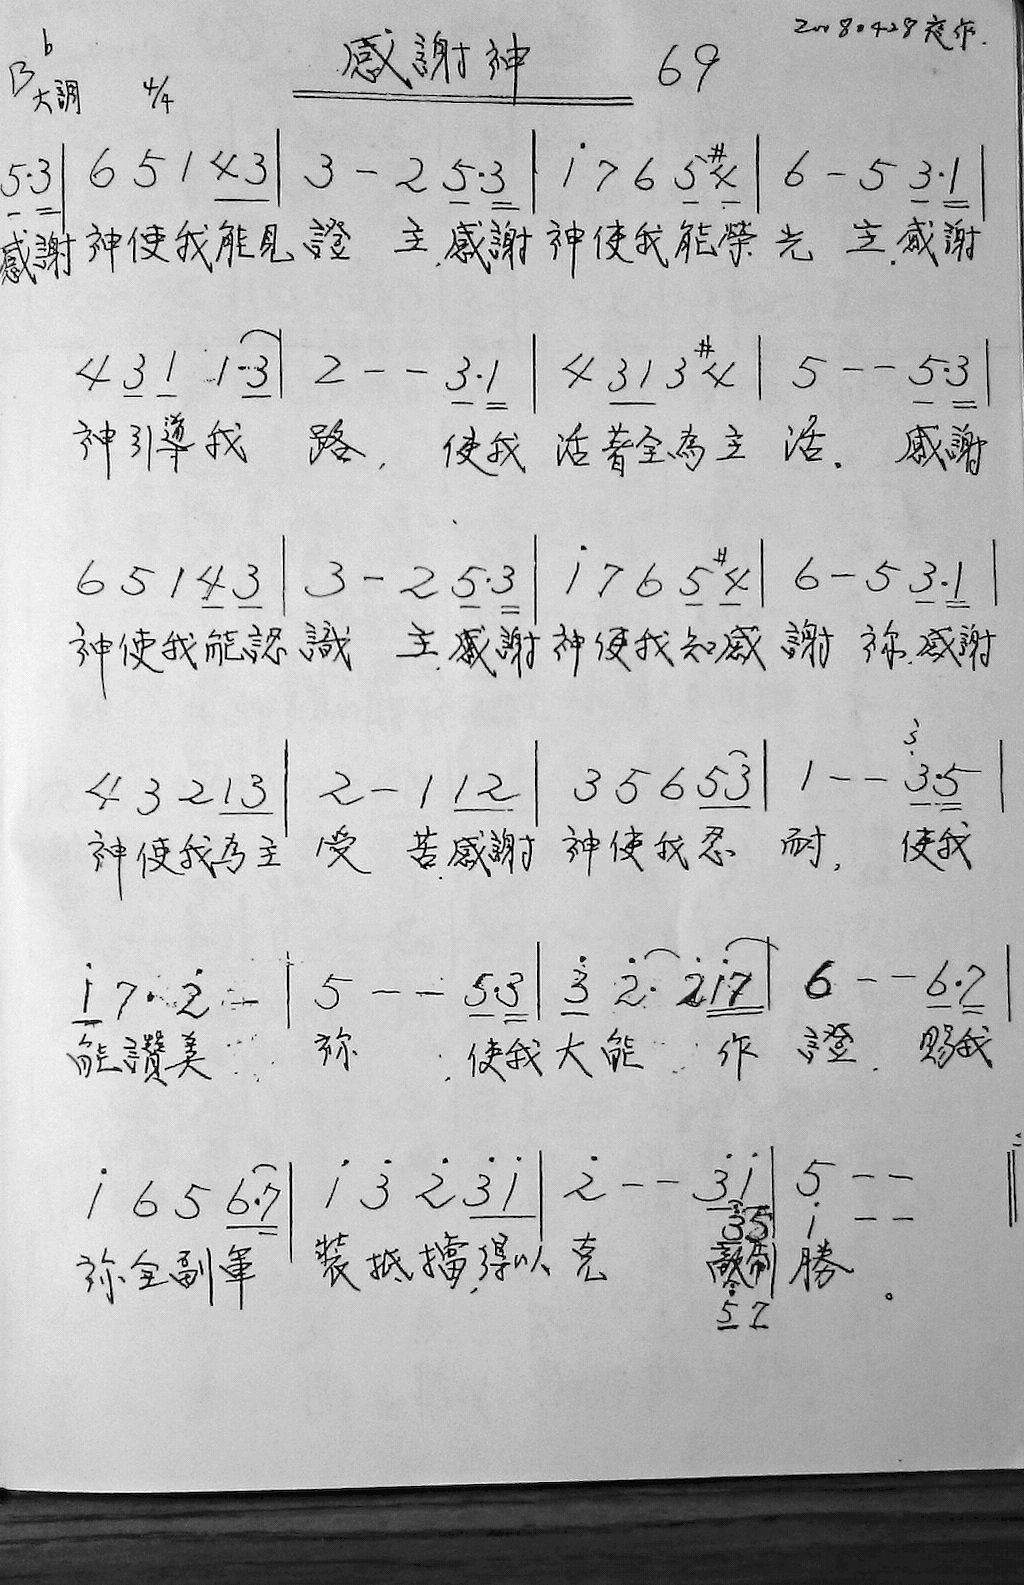 20080428夜作.
感謝神 69
B♭大調 4/4
5·3| 6 5 1 4 3| 3 - 2 5·3| i 7 6 5 #4| 6 - 5 3·1|
感謝神使我能見證 主.感謝神使我能榮光 主.感謝
4 3 1 1·3| 2 - - 3·1| 4 3 1 3 #4| 5 - - 5·3|
神引導我 路, 使我 活著全為主 活. 感謝
6 5 1 4 3| 3 - 2 5·3| i 7 6 5 #4| 6 - 5 3·1|
神使我能認識 主.感謝神使我知感謝 祢.感謝
3
4 3 2 1 3| 2 - 1 1 2| 3 5 6 5 3| 1 - - 3·5|
神使我為主 受 苦.感謝 神使我忍 耐, 使我
i 7· 2̇ - | 5 - - 5·3| 3̇ 2̇· 2̇ i·7| 6 - - 6·7|
能讚美 祢 . 使我大能 作 證. 賜我
i 6 5 6·7| i 3̇ 2̇ 3̇ i| 2̇ - - 3̇ i| 5 - -
3 5 i - -
祢全副軍 裝抵擋,得以 克 敵制 勝。
5 7